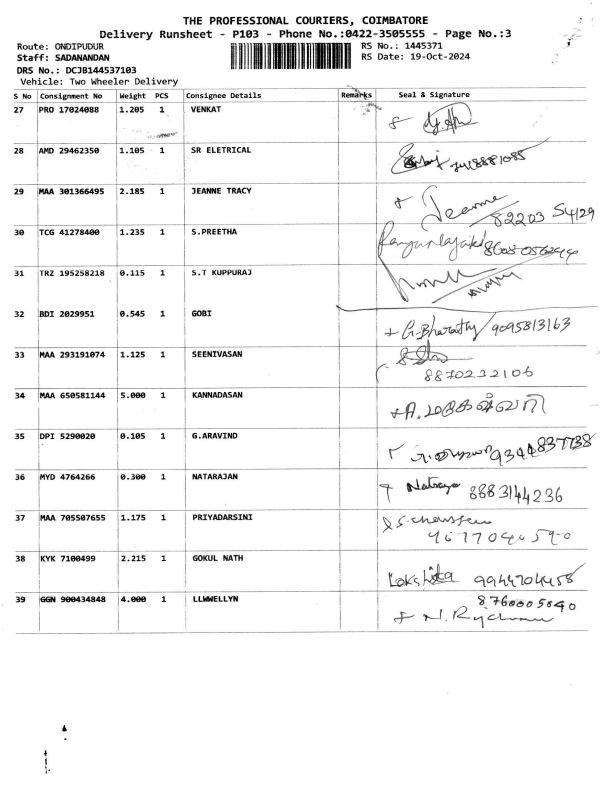 THE PROFESSIONAL COURIERS, COIMBATORE
Delivery Runsheet - P103 - Phone No.:0422-3505555 - Page No.:3
Route: ONDIPUDUR RS No.: 1445371
Staff: SADANANDAN RS Date: 19-Oct-2024
DRS No.: DCJB144537103
Vehicle: Two Wheeler Delivery
S No Consignment No Weight PCS Consignee Details Remarks Seal & Signature
27 PRO 17024088 1.205 1 VENKAT
28 AMD 29462350 1.105 1 SR ELETRICAL
29 MAA 301366495 2.185 1 JEANNE TRACY Jeanne
82203 54129
30 TCG 41278400 1.235 1 S.PREETHA
31 TRZ 195258218 0.115 1 S.T KUPPURAJ
32 BDI 2029951 0.545 1 GOBI G.Bharathy/9095813163
33 MAA 293191074 1.125 1 SEENIVASAN
8870232106
34 MAA 650581144 5.000 1 KANNADASAN
35 DPI 5290020 0.105 1 G.ARAVIND 9344837738
36 MYD 4764266 0.300 1 NATARAJAN 8883144236
37 MAA 705507655 1.175 1 PRIYADARSINI
38 KYK 7100499 2.215 1 GOKUL NATH
Lokshita 9944704458
39 GGN 900434848 4.000 1 LLWWELLYN 8760005040